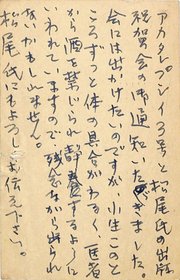 アカタレプシイ3号と松尾氏の出版
祝賀会の御通知いただきました。
会には出かけたいのですが、小生このと
ころずっと体の具合がわるく、医者
から酒を禁じられ静養するように
いわれていますので、残念ながら出られ
ないかもしれません。
松尾氏にもよろしくお伝え下さい。